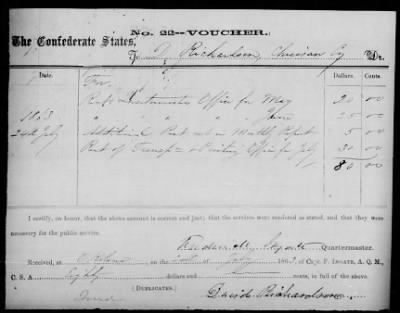 No. 22--VOUCHER.
The Confederate States,
To D. Richardson, Dr.
Date. Dollars. Cents.
For
Rent Office for May 20 00
1863 " " " " June 25 00
24th July Additional Rent not in Monthly Report 5 00
Rent of Transp'n & Office for July 30 00
80 00
I certify, on honor, that the above account is correct and just; that the services were rendered as stated, and that they were
necessary for the public service.
Quartermaster.
Received, at the 24th of July 1863, of Capt. F. INGATE, A. Q. M.,
C. S. A Eighty dollars and cents, in full of the above.
(DUPLICATES.)
David Richardson